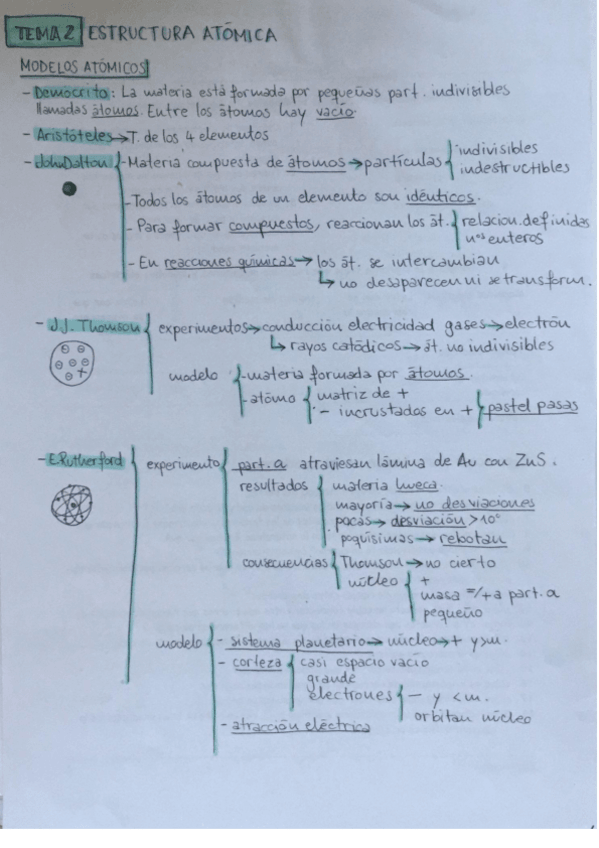 TEMA 2 ESTRUCTURA ATÓMICA
MODELOS ATÓMICOS
- Demócrito: La materia está formada por pequeñas part. indivisibles
llamadas átomos. Entre los átomos hay vacío.
- Aristóteles → T. de los 4 elementos
- John Dalton - Materia compuesta de átomos → partículas indivisibles
indestructibles
- Todos los átomos de un elemento son idénticos.
- Para formar compuestos, reaccionan los át. relacion. definidas
nºs enteros
- En reacciones químicas → los át. se intercambian
↳ no desaparecen ni se transform.
- J.J. Thomson experimentos → conducción electricidad gases → electrón
↳ rayos catódicos → át. no indivisibles
modelo - materia formada por átomos.
- átomo matriz de +
- incrustados en + pastel pasas
- E. Rutherford experimento part. α atraviesan lámina de Au con ZnS.
resultados materia hueca.
mayoría → no desviaciones
pocas → desviación > 10°
poquísimas → rebotan
consecuencias Thomson → no cierto
núcleo +
masa =/+ a part. α
pequeño
modelo - sistema planetario → núcleo → + y >m.
- corteza casi espacio vacío
grande
electrones - y <m.
orbitan núcleo
- atracción eléctrica